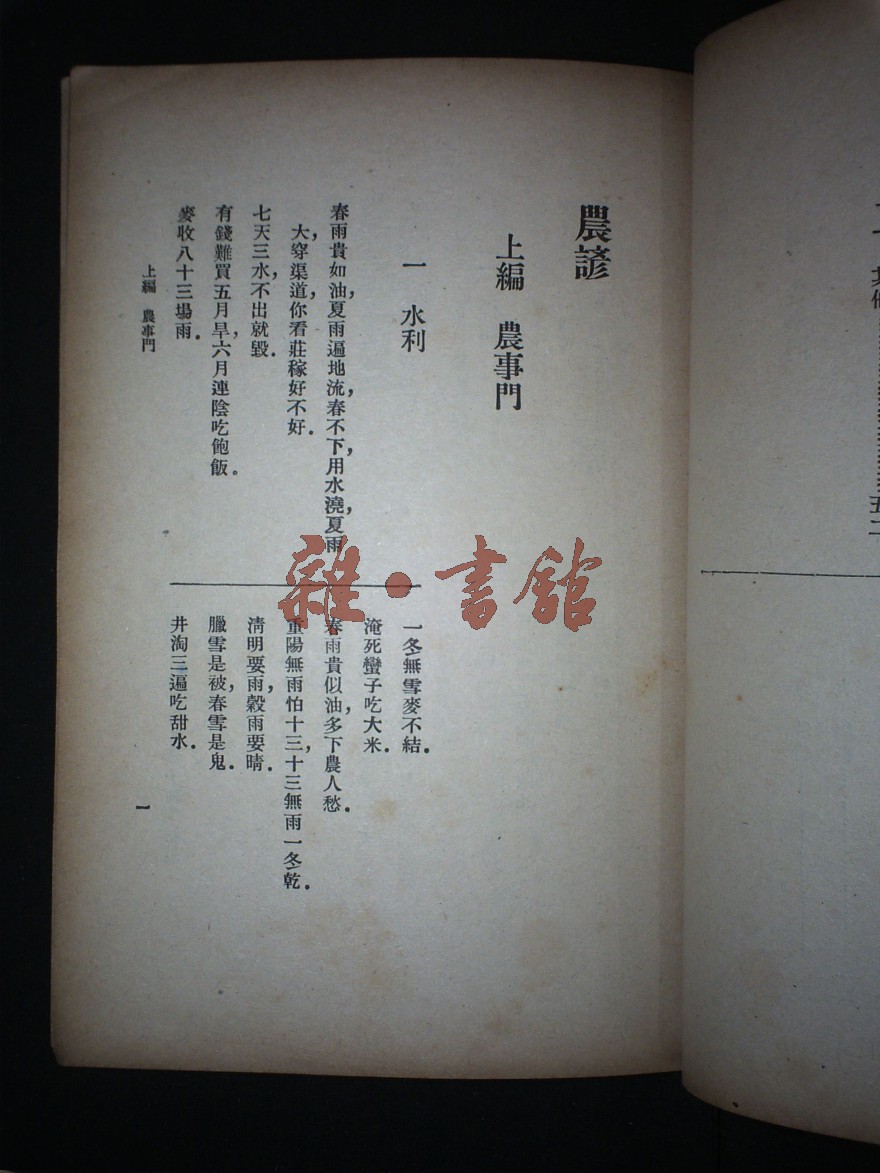 農諺
上編　農事門
一　水利
春雨貴如油，夏雨遍地流，春不下，用水澆，夏雨
大，穿渠道，你看莊稼好不好．
七天三水，不出就毀．
有錢難買五月旱，六月連陰吃飽飯。
麥收八十三場雨．
一冬無雪麥不結．
淹死蠻子吃大米．
春雨貴似油，多下農人愁．
重陽無雨怕十三，十三無雨一冬乾．
淸明要雨，穀雨要晴．
臘雪是被，春雪是鬼．
井淘三遍吃甜水．
上編　農事門
一
雜・書館
五二